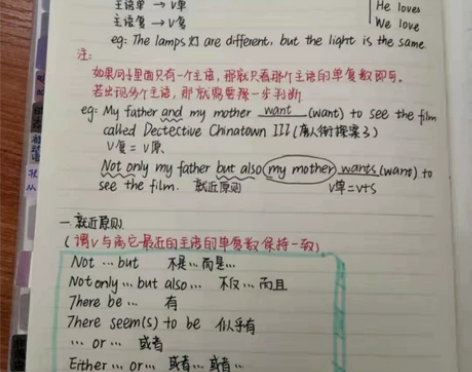 主语单 → v单
主语复 → v复
He loves
We love
eg: The lamps灯 are different, but the light is the same
注:
如果句子里面只有一个主语，那就只看那个主语的单复数即可。
若出现多个主语，那就需要进一步判断
eg: My father and my mother want (want) to see the film
called Dectective Chinatown III (唐人街探案3)
V复 = V原
Not only my father but also (my mother) wants (want) to
see the film. 就近原则 V单=v+s
一.就近原则.
(谓v与离它最近的主语的单复数保持一致)
Not … but 不是…而是…
Not only … but also … 不仅…而且
There be … 有
There seem(s) to be 似乎有
… or … 或者
Either … or … 或者…或者…